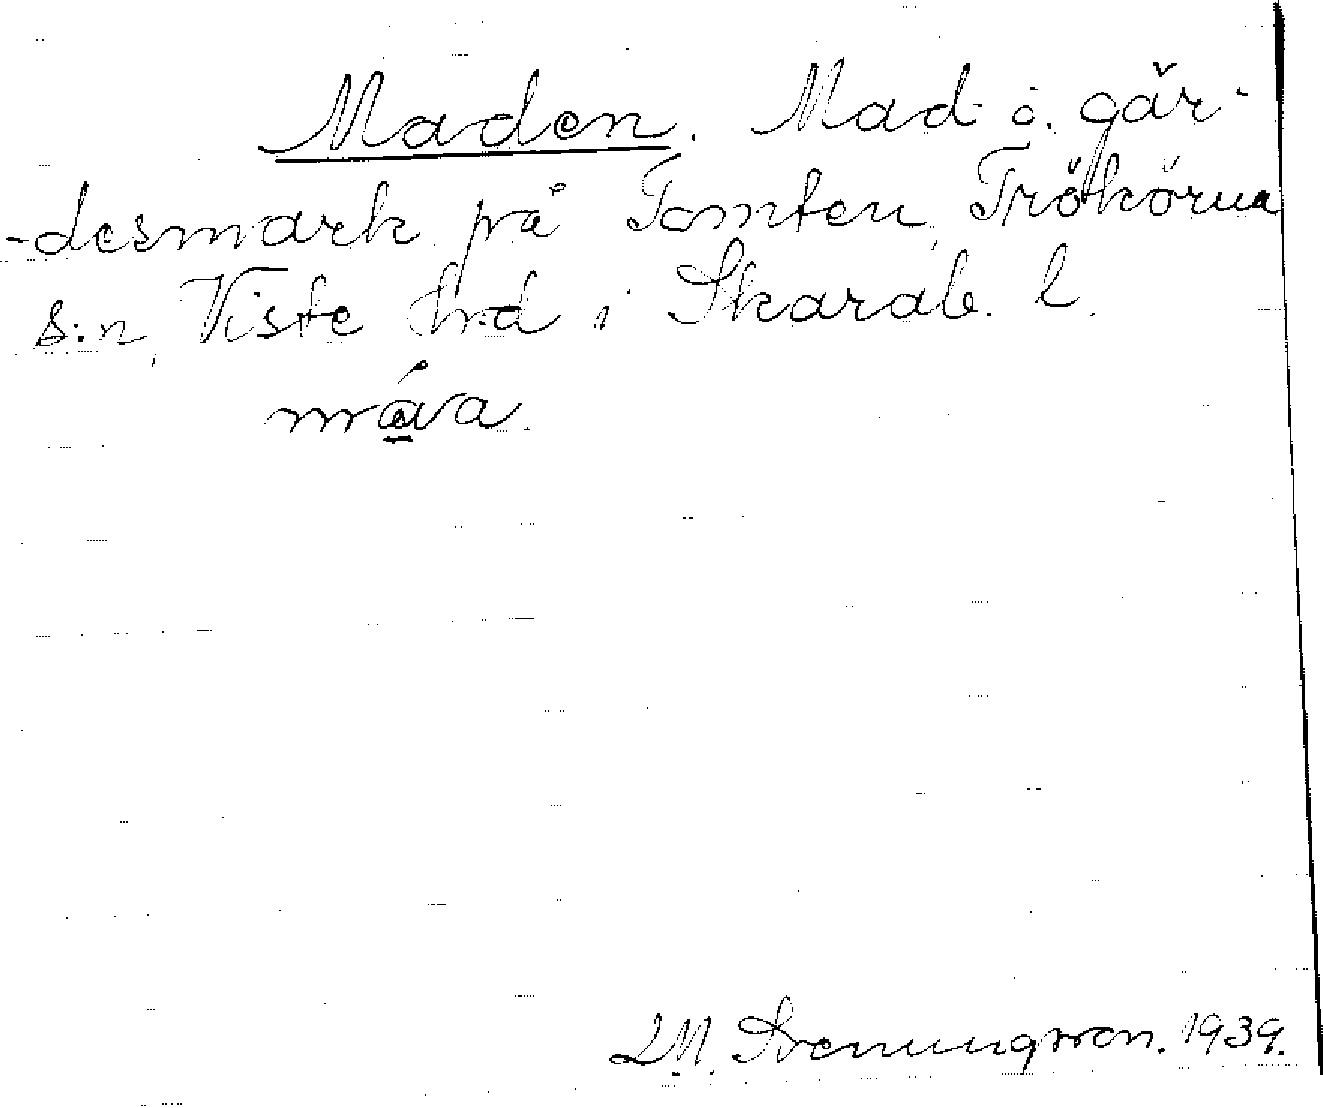 Maden. Mad i gär-
-desmark på Tomten, Trökörna
s:n, Viste hd i Skarab. l.
måva.
LM. Svenungsson. 1939.